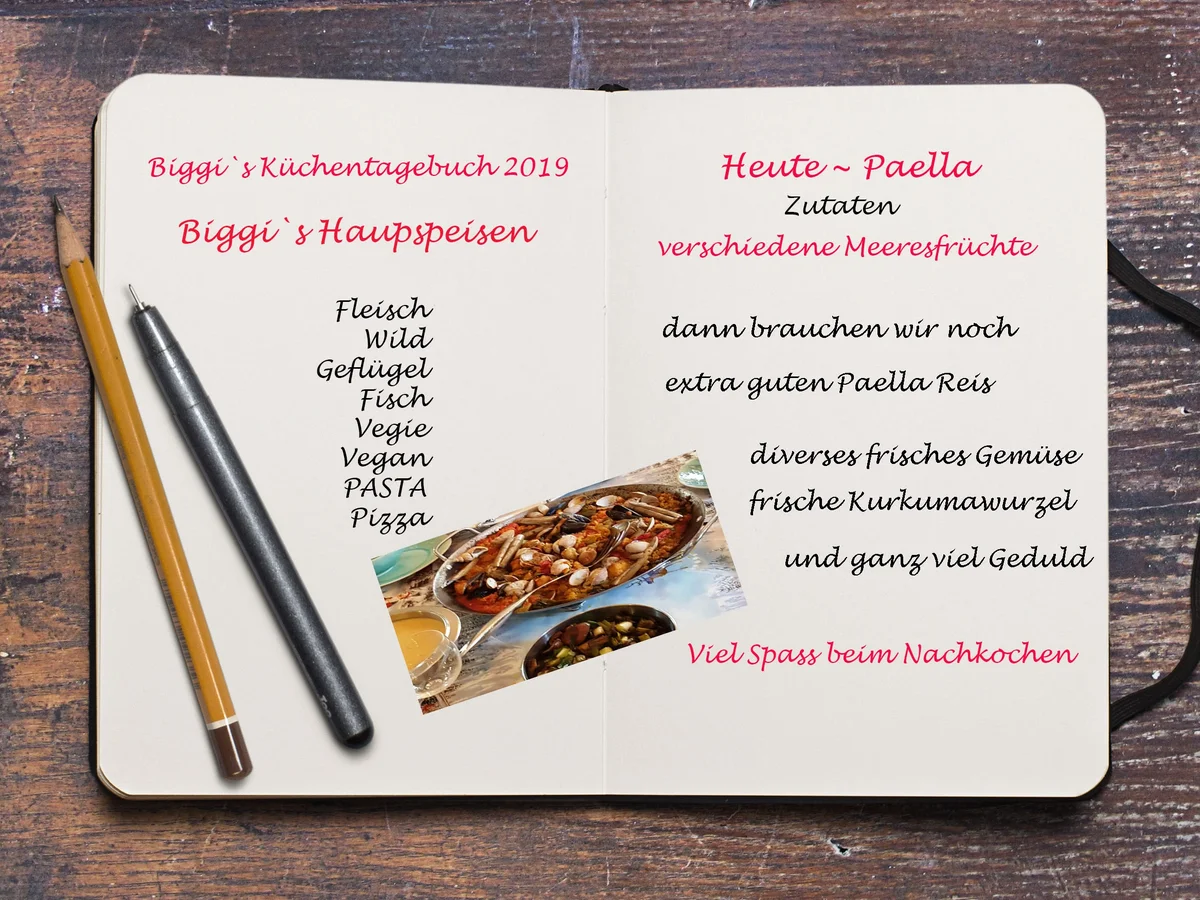 Biggi`s Küchentagebuch 2019
Biggi`s Haupspeisen
Fleisch
Wild
Geflügel
Fisch
Vegie
Vegan
PASTA
Pizza
Heute ~ Paella
Zutaten
verschiedene Meeresfrüchte
dann brauchen wir noch
extra guten Paella Reis
diverses frisches Gemüse
frische Kurkumawurzel
und ganz viel Geduld
Viel Spass beim Nachkochen